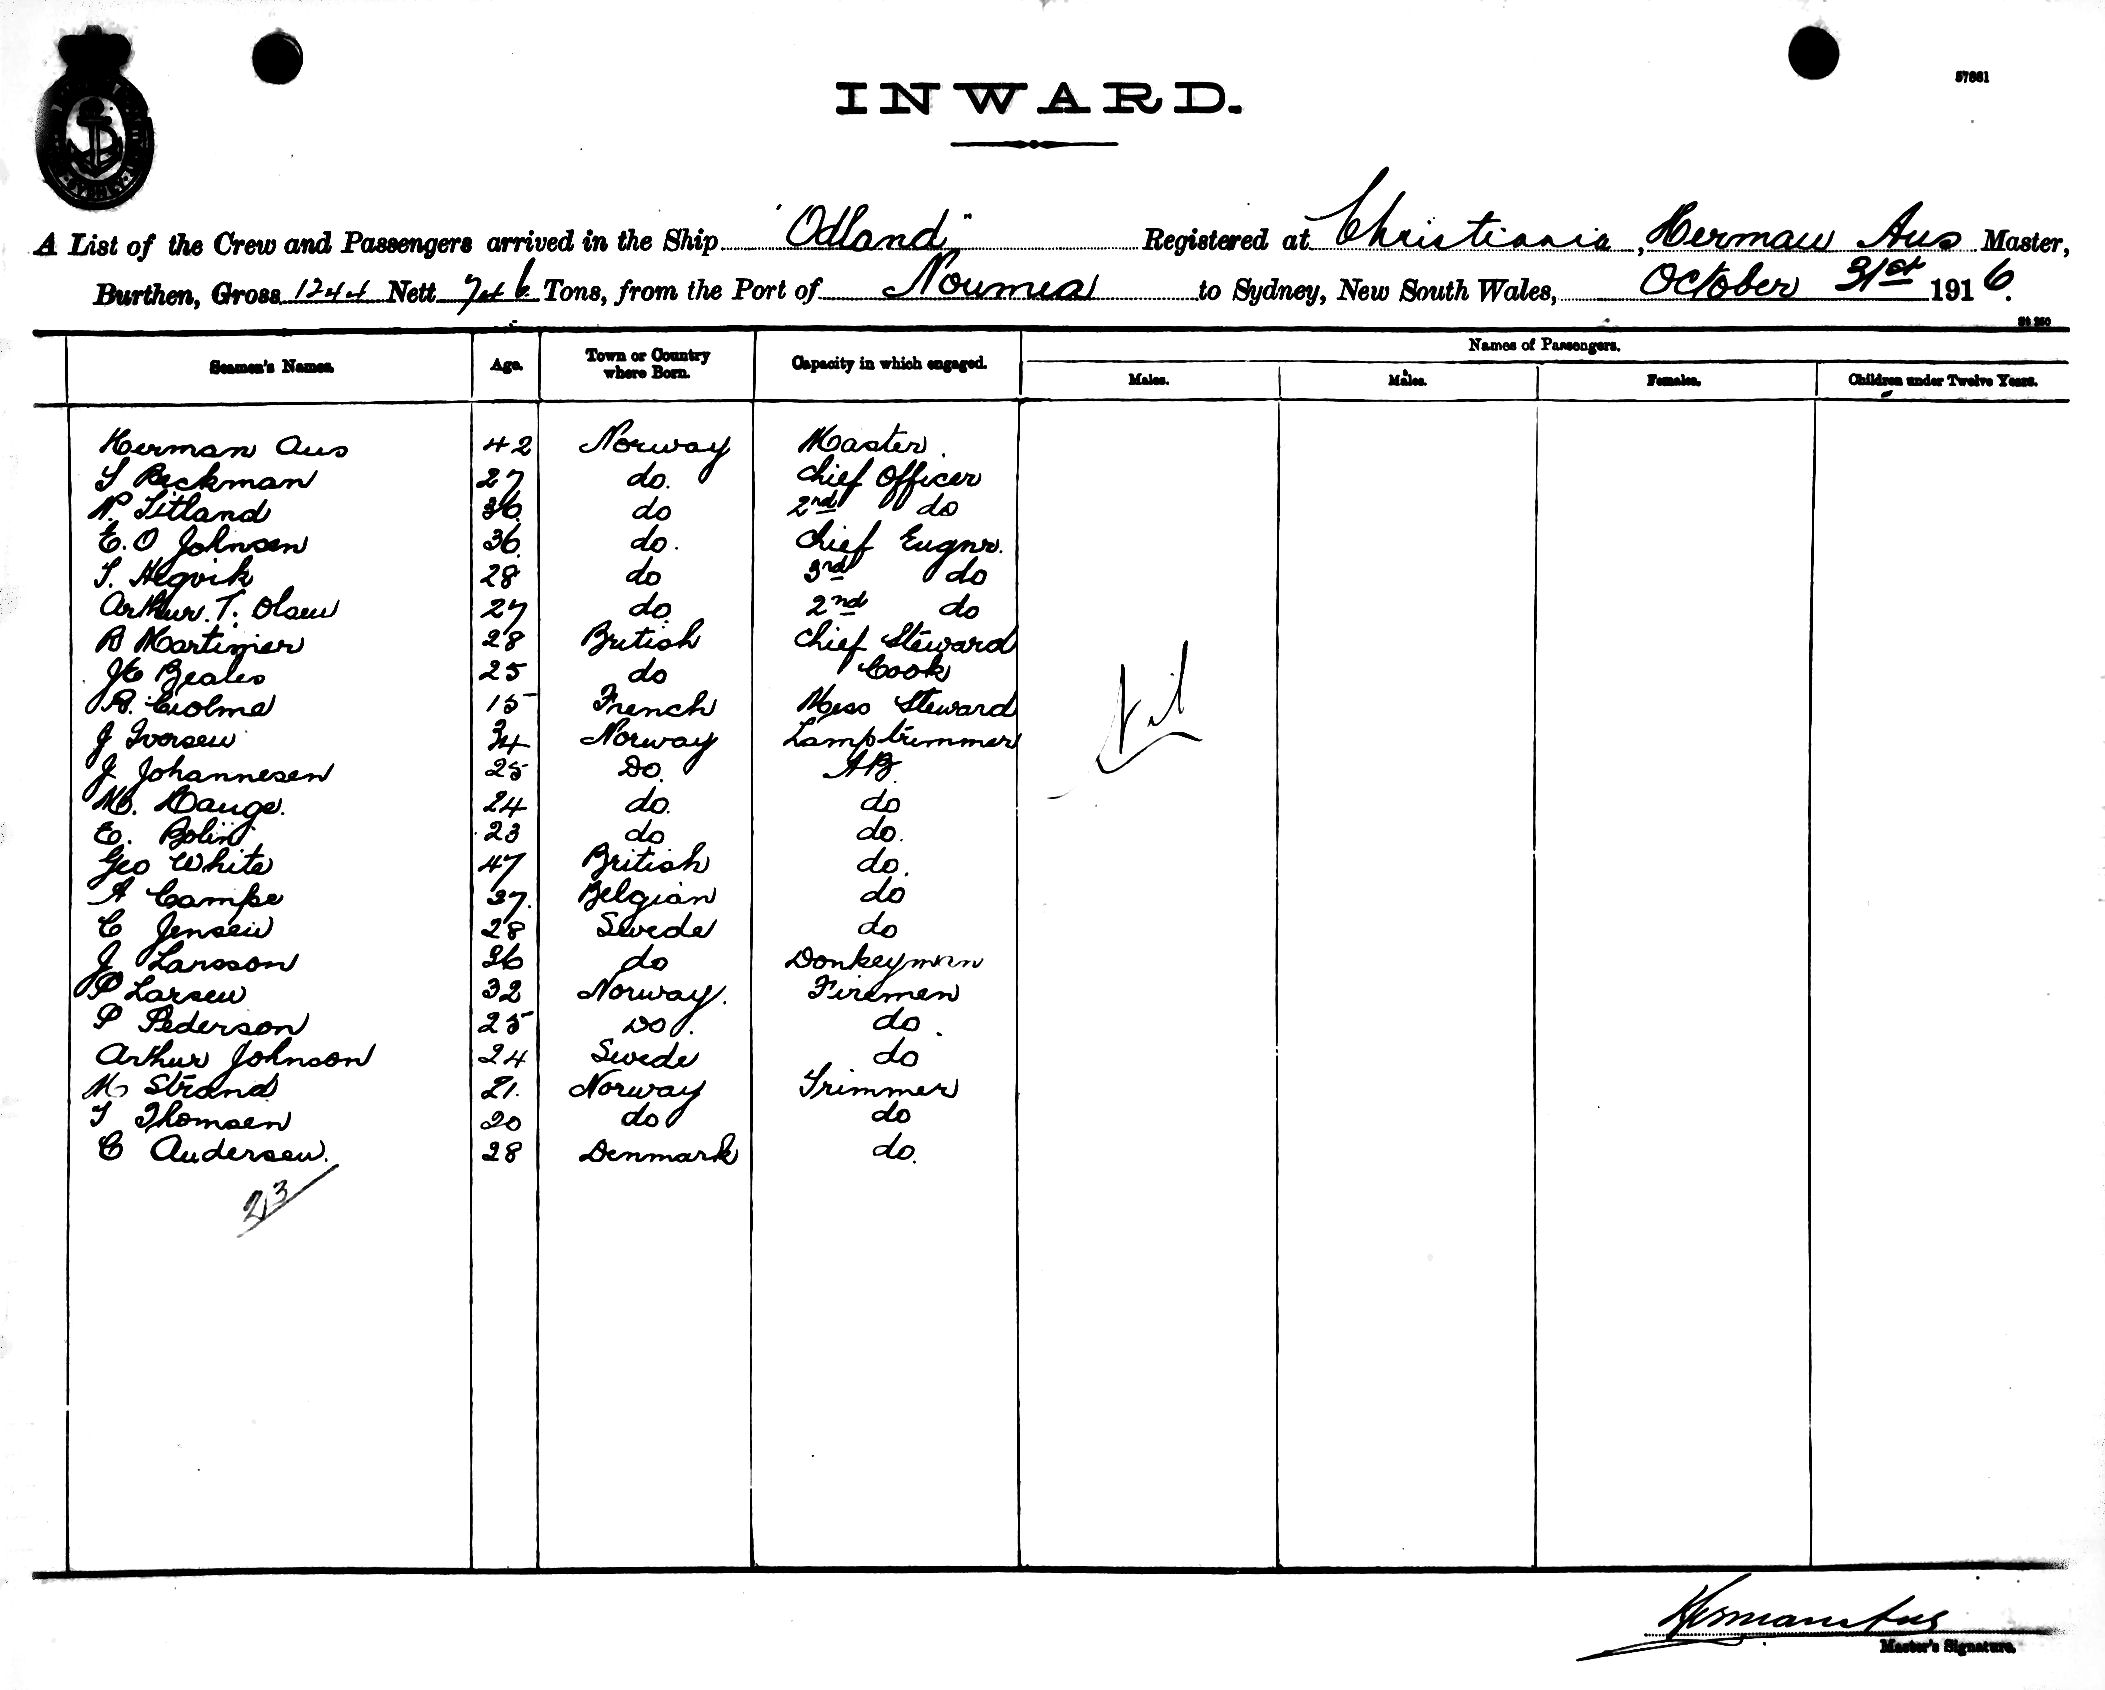 57661
INWARD.
A List of the Crew and Passengers arrived in the Ship "Odland" Registered at Christiania, Herman Aus Master,
Burthen, Gross 1244 Nett 746 Tons, from the Port of Noumea to Sydney, New South Wales, October 31st 1916.
St 250
Seamen's Names. Age. Town or Country where Born. Capacity in which engaged. Names of Passengers.
Males. Males. Females. Children under Twelve Years.
Herman Aus 42 Norway Master.
S Beckman 27 do. Chief Officer
N. Titland 36 do 2nd do
E. O Johnsen 36 do. Chief Engnr.
S. Hegvik 28 do 3rd do
Arthur. T. Olsen 27 do 2nd do
R Mortimer 28 British Chief Steward
Beales 25 do Cook
R. 15 French Mess Steward
J Iversen 34 Norway Lamptrimmer
J Johannesen 25 Do. AB
M. Hauge. 24 do. do
E. Bolin 23 do do.
Geo White 47 British do.
A Campe 37. Belgian do
C Jensen 28 Swede do
J Larsson 36 do Donkeyman
P Larsen 32 Norway. Firemen
P Pederson 25 Do. do.
Arthur Johnson 24 Swede do
M Strand 21. Norway Trimmer
T Thomsen 20 do do
C Andersen. 28 Denmark do.
Nil
23
Herman Aus
Master's Signature.